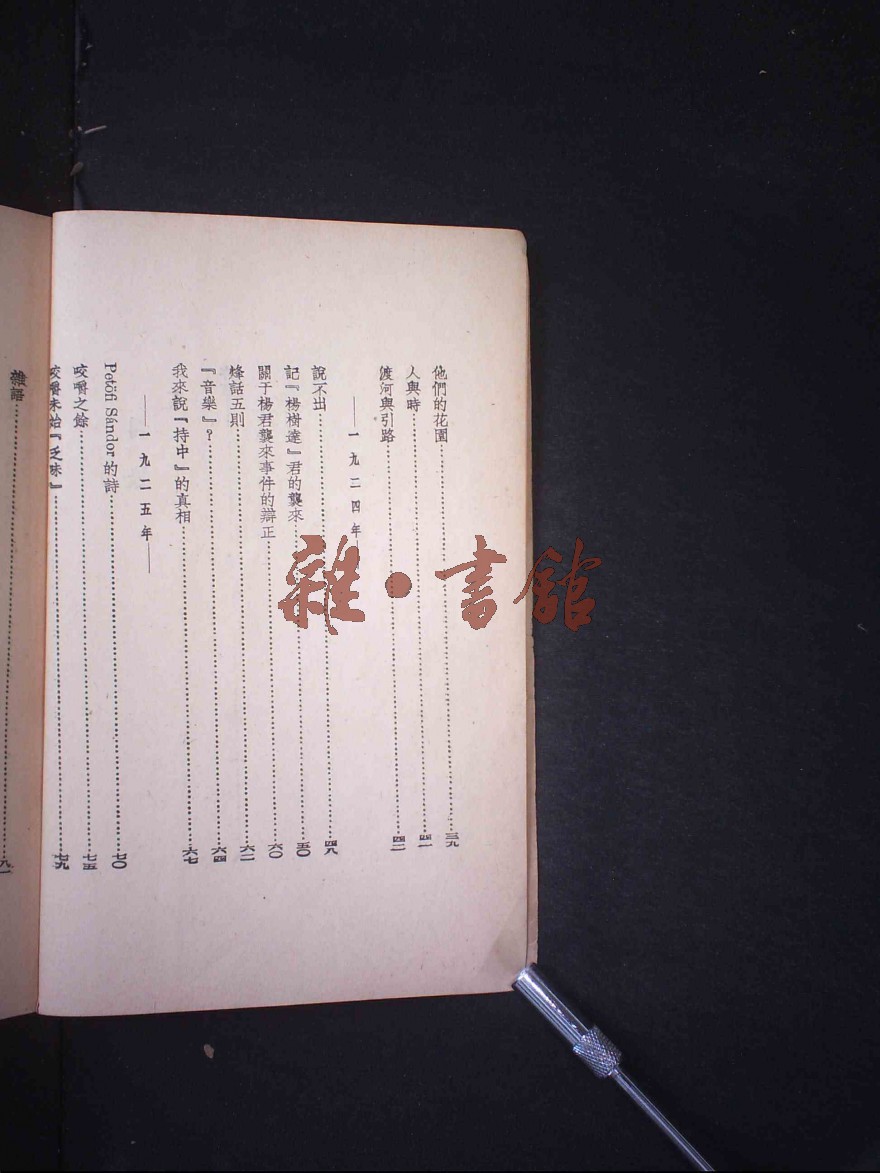 他們的花園……三九
人與時……四一
渡河與引路……四二
——一九二四年——
說不出……四八
記『楊樹達』君的襲來……五〇
關于楊君襲來事件的辯正……六〇
烽話五則……六二
『音樂』？……六四
我來說『持中』的真相……六七
——一九二五年——
Petöfi Sándor 的詩……七〇
咬嚼之餘……七五
咬嚼未始『乏味』……七九
雜語……八一
雜·書館